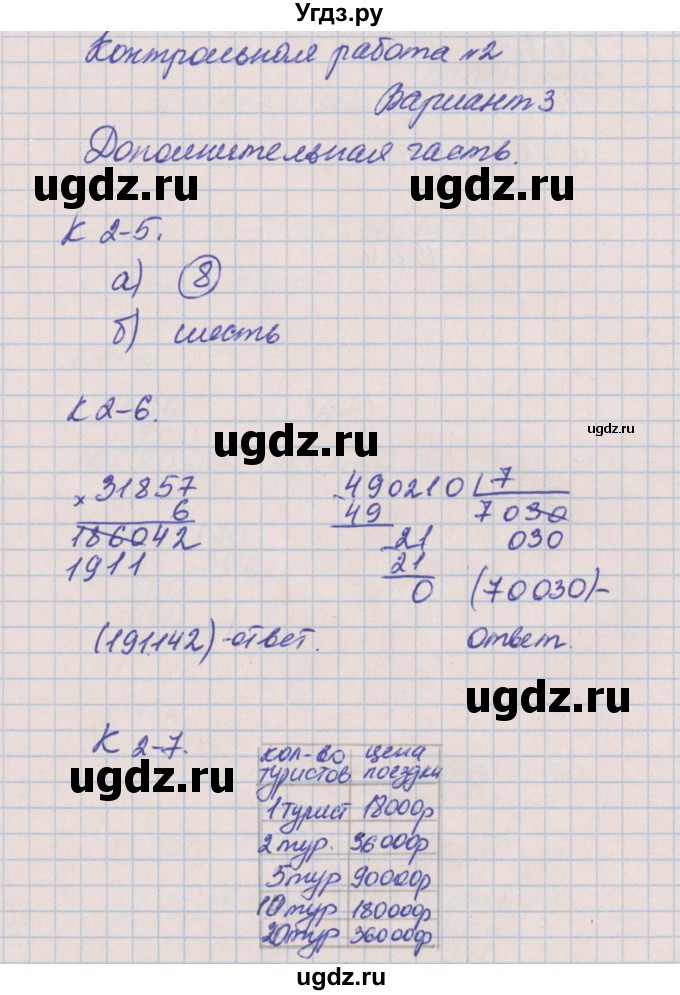 Угдз.ру
Контрольная работа №2
Вариант 3
Дополнительная часть.
ugdz.ru ugdz.ru
К 2-5.
а) 8
б) шесть
К 2-6.
ugdz.ru ugdz.ru
× 31857
6
186042
1911
(191142) - ответ.
490210 7
- 49 7030
- 21 030
21
0 (70030) -
ответ.
ugdz.ru
К 2-7.
ugdz.ru
кол-во туристов цена поездки
1 турист 18000р
2 тур. 36000р
5 тур 90000р
10 тур 180000р
20 тур 360000р
ugdz.ru